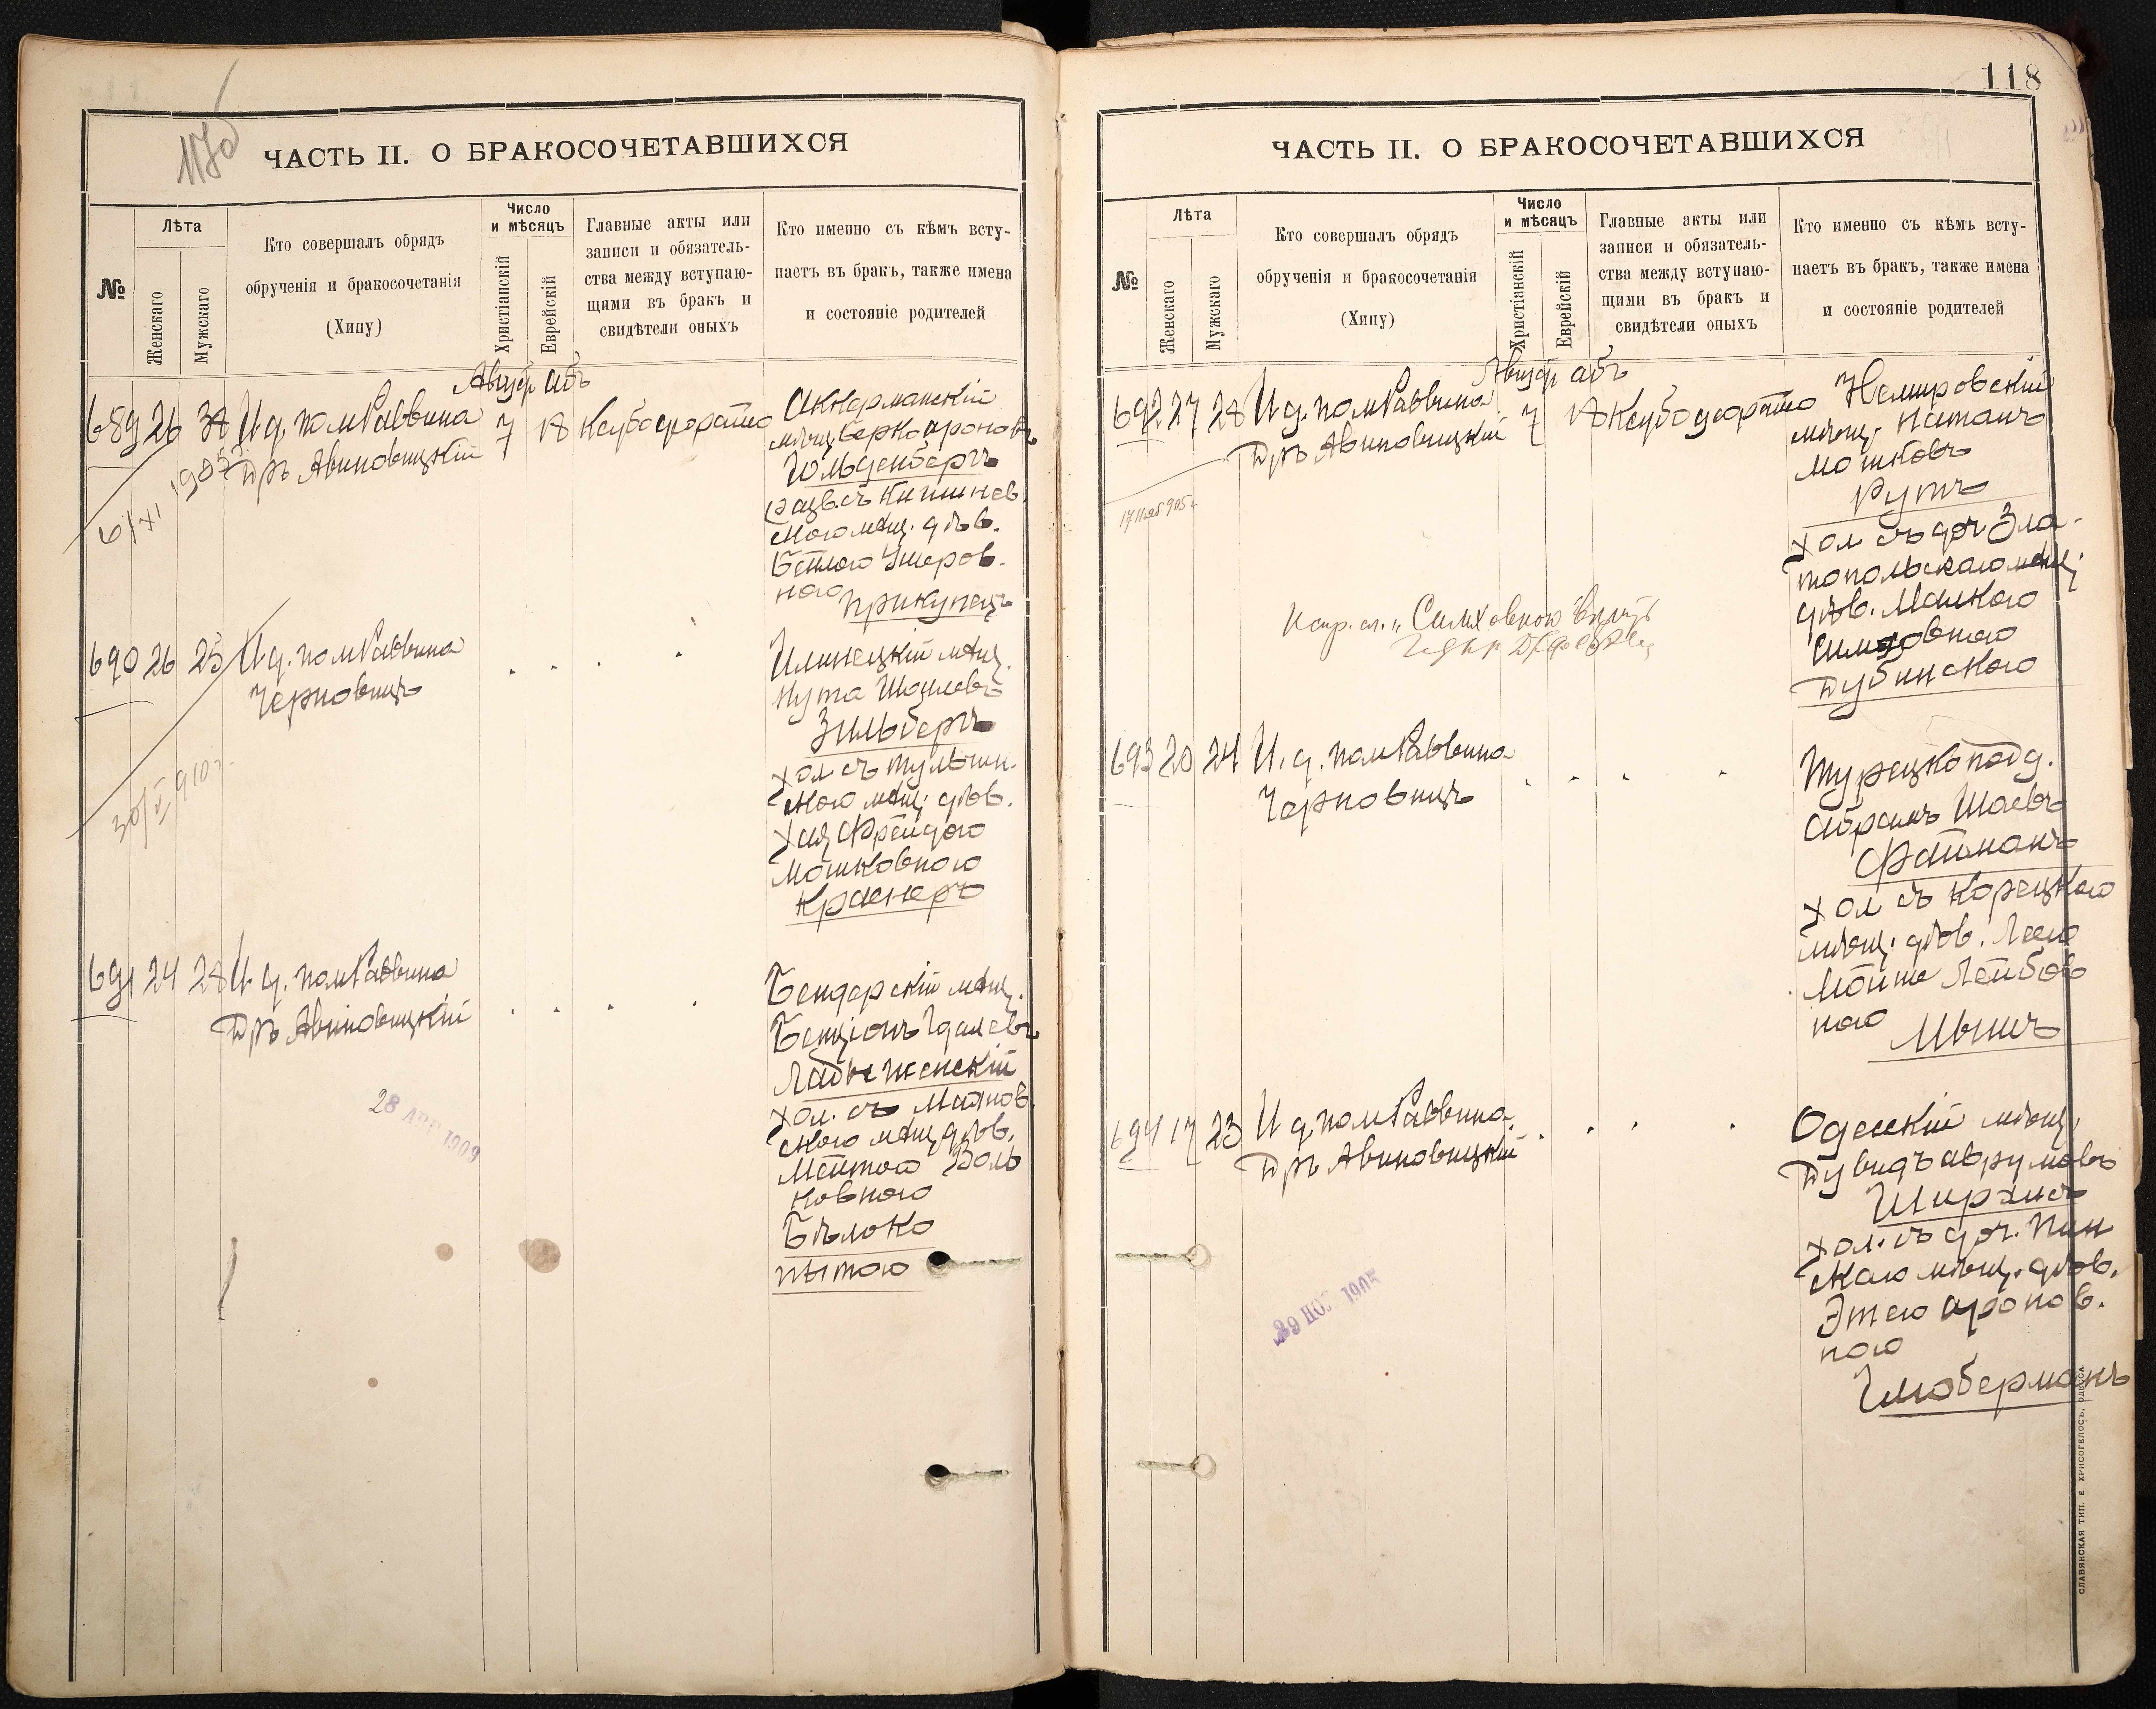 117об
ЧАСТЬ II. О БРАКОСОЧЕТАВШИХСЯ
№
Лѣта
Женскаго
Мужскаго
Кто совершалъ обрядъ
обрученія и бракосочетанія
(Хипу)
Число
и мѣсяцъ
Христіанскій
Еврейскій
Главные акты или
записи и обязатель-
ства между вступаю-
щими въ бракъ и
свидѣтели оныхъ
Кто именно съ кѣмъ всту-
паетъ въ бракъ, также имена
и состояніе родителей
Август абъ
689 26 И д. помРаввина 7 18
Дръ Авиновицкій
Аккерманскій
мѣщ. Берко Ароновъ
Гольденбергъ
разв. съ Кишинев.
скою мѣщ. дѣв.
Бейлою Умеров.
ною
Прикупецъ
690 26 25 И д. помРаввина
Черновицъ
30/V 910 г.
Илинецкій мѣщ.
Нута Шоилевъ
Зильбергъ
хол съ Тульчин.
скою мѣщ. дѣв.
Хая Фрейдою
Мошковною
Краснеръ
691 24 28 И д. помРаввина
Дръ Авиновицкій
28 АПР 1909
Бендерскій мѣщ.
Бенціонъ Гдалевъ
Ладыженскій
хол. съ Маянов.
скою мѣщ дѣв.
Мейтою Воль
ковною
Бѣлоко
пытою
118
ЧАСТЬ II. О БРАКОСОЧЕТАВШИХСЯ
№
Лѣта
Женскаго
Мужскаго
Кто совершалъ обрядъ
обрученія и бракосочетанія
(Хипу)
Число
и мѣсяцъ
Христіанскій
Еврейскій
Главные акты или
записи и обязатель-
ства между вступаю-
щими въ бракъ и
свидѣтели оныхъ
Кто именно съ кѣмъ всту-
паетъ въ бракъ, также имена
и состояніе родителей
Август абъ
692 27 28 И д. помРаввина 7 18
Дръ Авиновицкій
17 Нояб 905 г.
Немировскій
мѣщ. Натанъ
Мошковъ
Рутъ
хол съ доч Зла-
топольскаго мѣщ.
дѣв. Малкою
Симховною
Дубинскою
693 20 24 И. д. помРаввина
Черновицъ
Турецкопод д.
Абрамъ Шаевъ
Файманъ
хол съ Корецкою
мѣщ. дѣв. Леею
Мойше Лейбов
ною
Мышъ
694 17 23 И д помРаввина
Дръ Авиновицкій
29 НОЯ 1905
Одесскій мѣщ.
Дувидъ Аврумовъ
Ширъ
хол. съ доч. Пин
скаго мѣщ. дѣв.
Этею Аронов.
ною
Глюберманъ
СЛАВЯНСКАЯ ТИП. Е. ХРИСОГЕЛОСЪ, ОДЕССА